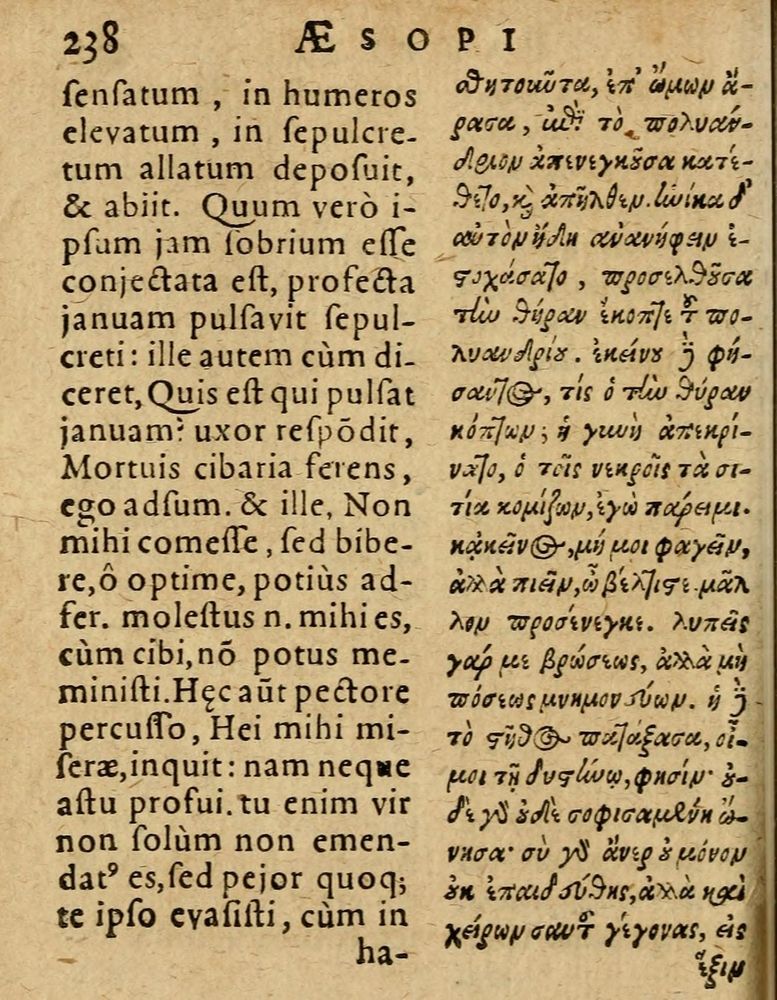 238 ÆSOPI
ſenſatum , in humeros
elevatum , in ſepulcre-
tum allatum depoſuit,
& abiit. Quum verò i-
pſum jam ſobrium eſſe
conjectata eſt, profecta
januam pulſavit ſepul-
creti: ille autem cùm di-
ceret, Quis eſt qui pulſat
januam? uxor reſpōdit,
Mortuis cibaria ferens,
ego adſum. & ille, Non
mihi comeſſe, ſed bibe-
re, ô optime, potiùs ad-
fer. moleſtus n. mihi es,
cùm cibi, nō potus me-
miniſti. Hęc aūt pectore
percuſſo, Hei mihi mi-
ſeræ, inquit: nam neque
aſtu profui. tu enim vir
non ſolùm non emen-
datꝰ es, ſed pejor quoq;
te ipſo evaſiſti, cùm in
ha-
σθητοιοῦτα, ἐπ' ὤμων ἄ-
ρασα, κᾀπὶ τὸ πολυάν-
δριον ἀπενεγκοῦσα κατέ-
θετο, καὶ ἀπῆλθεν. ἡνίκα δ'
αὐτὸν ἤδη ἀνανήφειν ἐ-
στοχάσατο , προσελθοῦσα
τὴν θύραν ἔκοπτε τοῦ πο-
λυανδρίου. ἐκείνου δὲ φή-
σαντος, τίς ὁ τὴν θύραν
κόπτων; ἡ γυνὴ ἀπεκρί-
νατο, ὁ τοῖς νεκροῖς τὰ σι-
τία κομίζων, ἐγὼ πάρειμι.
κᾀκεῖνος, μή μοι φαγεῖν,
ἀλλὰ πιεῖν, ὦ βέλτιστε μᾶλ
λον προσένεγκε. λυπεῖς
γάρ με βρώσεως, ἀλλὰ μὴ
πόσεως μνημονεύων. ἡ δὲ
τὸ στῆθος πατάξασα, οἴ-
μοι τῇ δυστήνῳ, φησίν· οὐ-
δὲ γὰρ οὐδὲ σοφισαμένη ὤ-
νησα· σὺ γὰρ ἄνερ οὐ μόνον
οὐκ ἐπαιδεύθης, ἀλλὰ καὶ
χείρων σαυτοῦ γέγονας, εἰς
ἕξιν